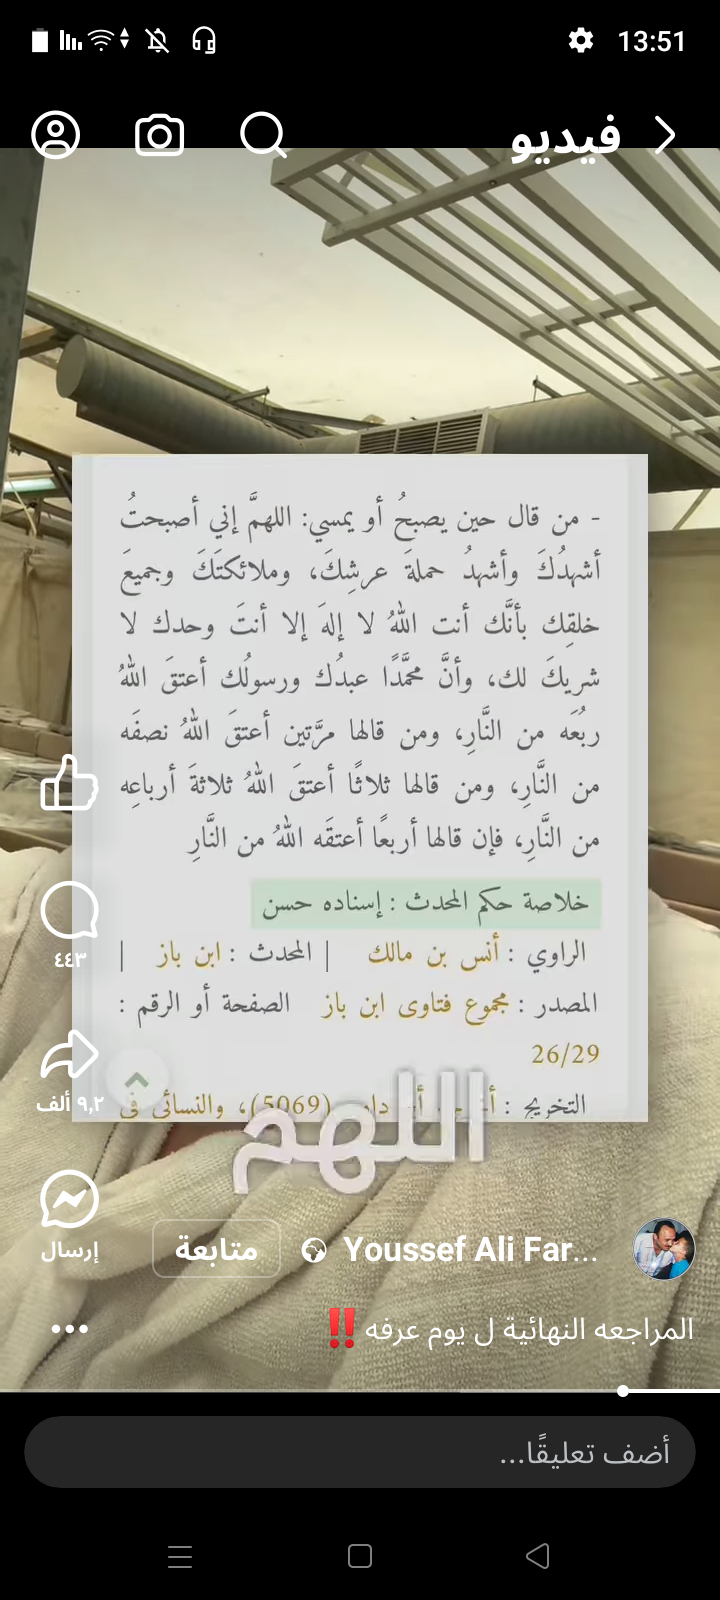 13:51
فيديو
- من قال حين يصبحُ أو يمسي: اللهمَّ إني أصبحتُ
أشهدُكَ وأشهدُ حملةَ عرشِكَ، وملائكتَكَ وجميعَ
خلقِك بأنَّك أنت اللهُ لا إلهَ إلا أنتَ وحدك لا
شريكَ لك، وأنَّ محمَّدًا عبدُك ورسولُك أعتقَ اللهُ
ربُعَه من النَّارِ، ومن قالها مرَّتين أعتقَ اللهُ نصفَه
من النَّارِ، ومن قالها ثلاثًا أعتقَ اللهُ ثلاثةَ أرباعِه
من النَّارِ، فإن قالها أربعًا أعتقَه اللهُ من النَّارِ
خلاصة حكم المحدث : إسناده حسن
الراوي : أنس بن مالك | المحدث : ابن باز |
المصدر : مجموع فتاوى ابن باز الصفحة أو الرقم :
26/29
التخريج : (5069)، والنسائي في
اللهم
٤٤٣
٩,٢ ألف
إرسال
Youssef Ali Far...
متابعة
المراجعه النهائية ل يوم عرفه‼️
أضف تعليقًا...